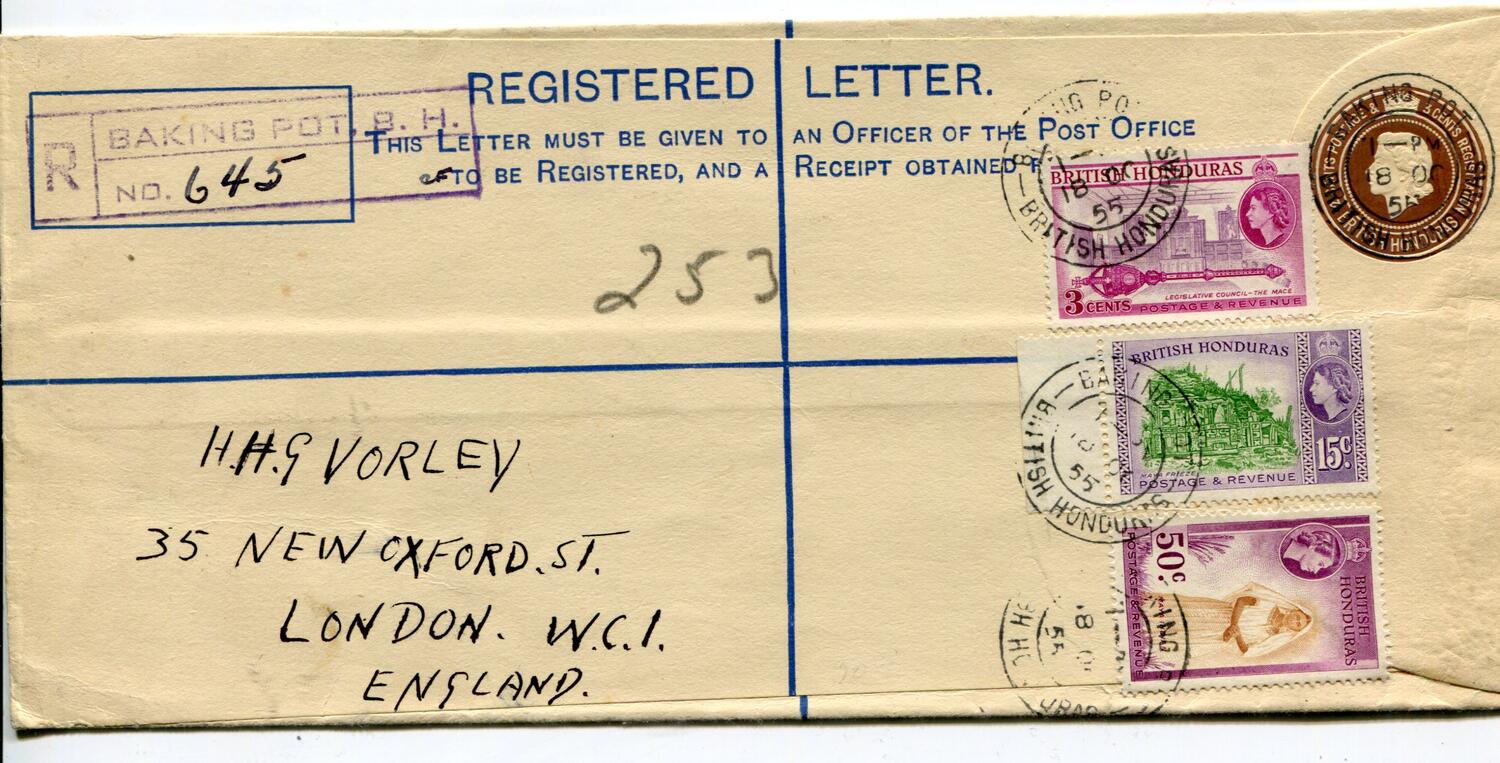 REGISTERED LETTER.
THIS LETTER MUST BE GIVEN TO AN OFFICER OF THE POST OFFICE
TO BE REGISTERED, AND A RECEIPT OBTAINED
R
BAKING POT, B. H.
NO. 645
253
H.H.G VORLEY
35 NEW OXFORD. ST.
LONDON. W.C.1.
ENGLAND.
BAKING POT
1-PM
18 OC
55
BRITISH HONDURAS
3 CENTS REGISTRATION
BRITISH HONDURAS
18 OC
55
BRITISH HONDURAS
LEGISLATIVE COUNCIL-THE MACE
3 CENTS POSTAGE & REVENUE
BRITISH HONDURAS
15c.
MAYA FRIEZE
POSTAGE & REVENUE
55
BRITISH HONDURAS
50c.
POSTAGE & REVENUE
BRITISH HONDURAS
18
55